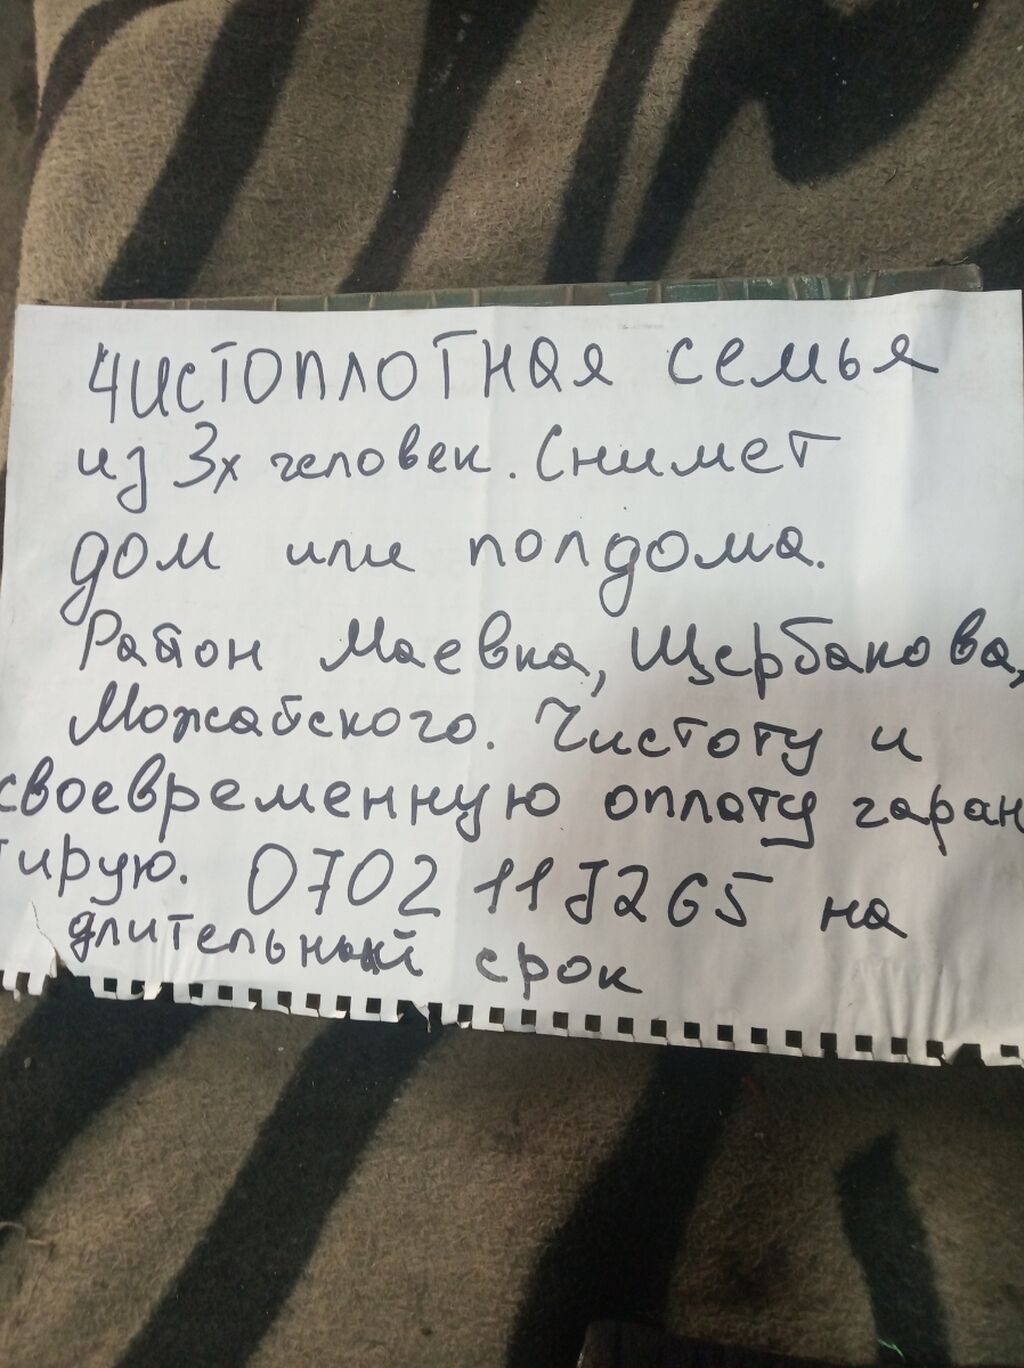 Чистоплотная семья
из 3х человек. Снимет
дом или полдома.
Район Маевка, Щербакова,
Можайского. Чистоту и
своевременную оплату гаран
тирую. 0702 115265 на
длительный срок